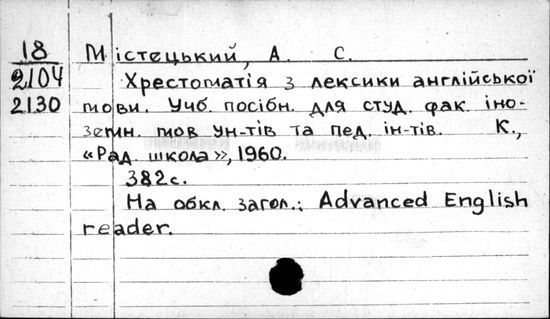 18
2104
2130
Містецький, А. С.
Хрестоматія з лексики англійської
мови. Учб. посібн. для студ. фак. іно-
земн. мов ун-тів та пед. ін-тів. К.,
«Рад. школа», 1960.
382с.
На обкл. загол.: Advanced English
reader.